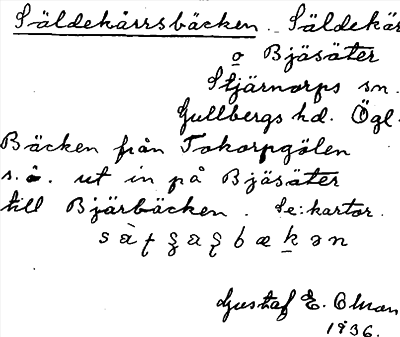 Säldekärrsbäcken. Säldekär
o Bjäsäter
Stjärnorps sn.
Gullbergs hd. Ögl.
Bäcken från Tokorpgölen
s.ö. ut in på Bjäsäter
till Bjärbäcken. Se: kartor.
Gustaf E. Olsson
1936.